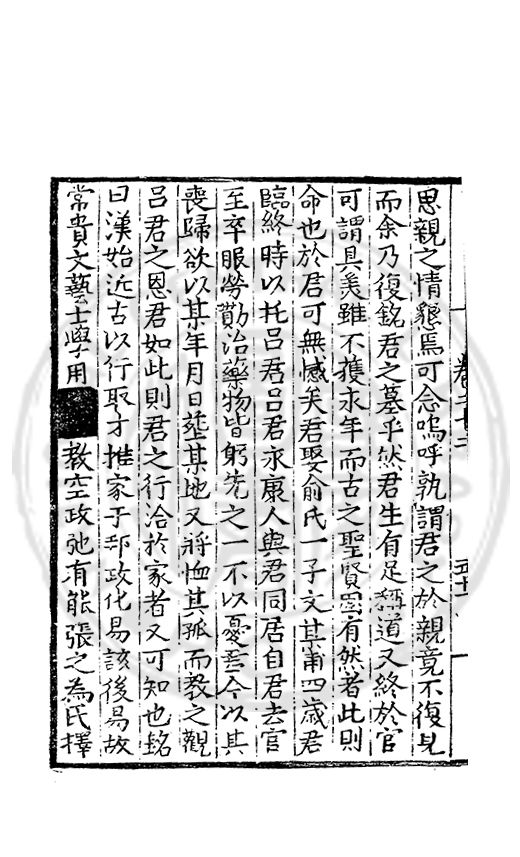 思親之情懇焉可念嗚呼孰謂君之於親竟不復見
而余乃復銘君之墓乎然君生有足稱道又終於官
可謂具美雖不獲永年而古之聖賢固有然者此則
命也於君可無憾矣君娶俞氏一子文某甫四歲君
臨終時以托呂君呂君永康人與君同居自君去官
至卒服勞勩治藥物皆躬先之一不以憂吾今以其
喪歸欲以某年月日塟某地又將恤其孤而教之觀
呂君之恩君如此則君之行洽於家者又可知也銘
曰漢始近古以行取才推家于邦政化易該後易故
常貴文藝士學用 教空政弛有能張之為民擇